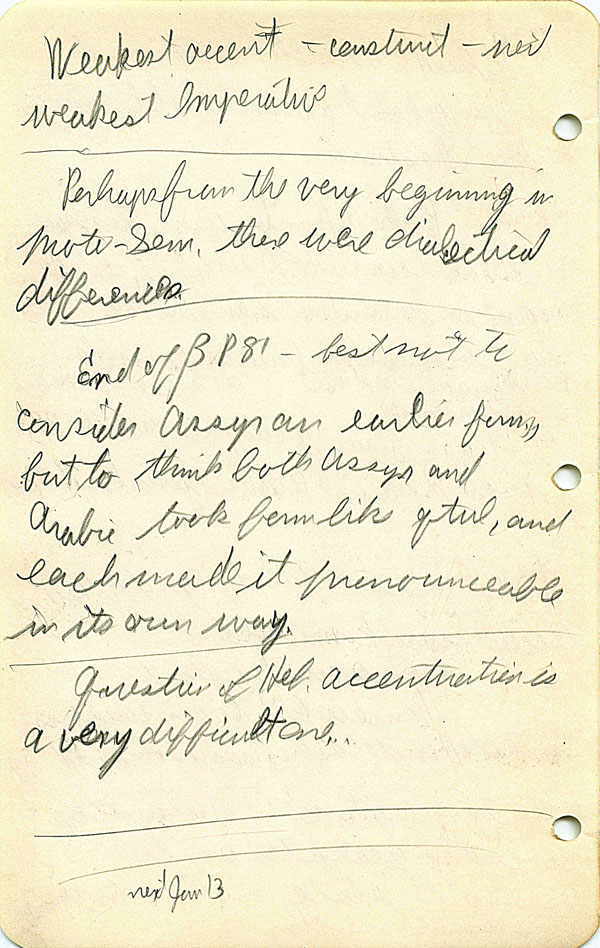 Weakest accent – construct – next
weakest Imperative
Perhaps from the very beginning in
proto-Sem. there were dialectical
differences.
End of β P 81 – best not to
consider Assyr an earlier form,
but to think both Assyr and
Arabic took form like qtul, and
each made it pronounceable
in its own way.
Question of Heb. accentuation is
a very difficult one...
next Jan 13